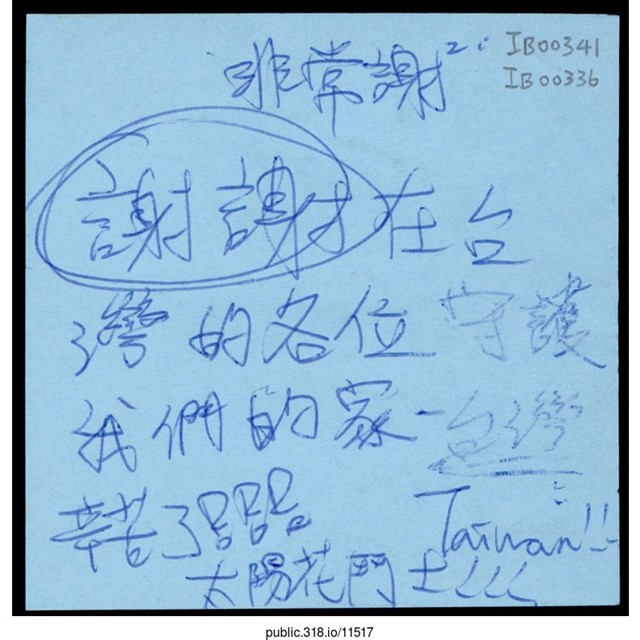 IB00341
IB00336
非常謝²:
謝謝在台
灣的各位守護
我們的家-台灣
辛苦了呂呂呂
Taiwan!!
太陽花鬥士!!!
public.318.io/11517